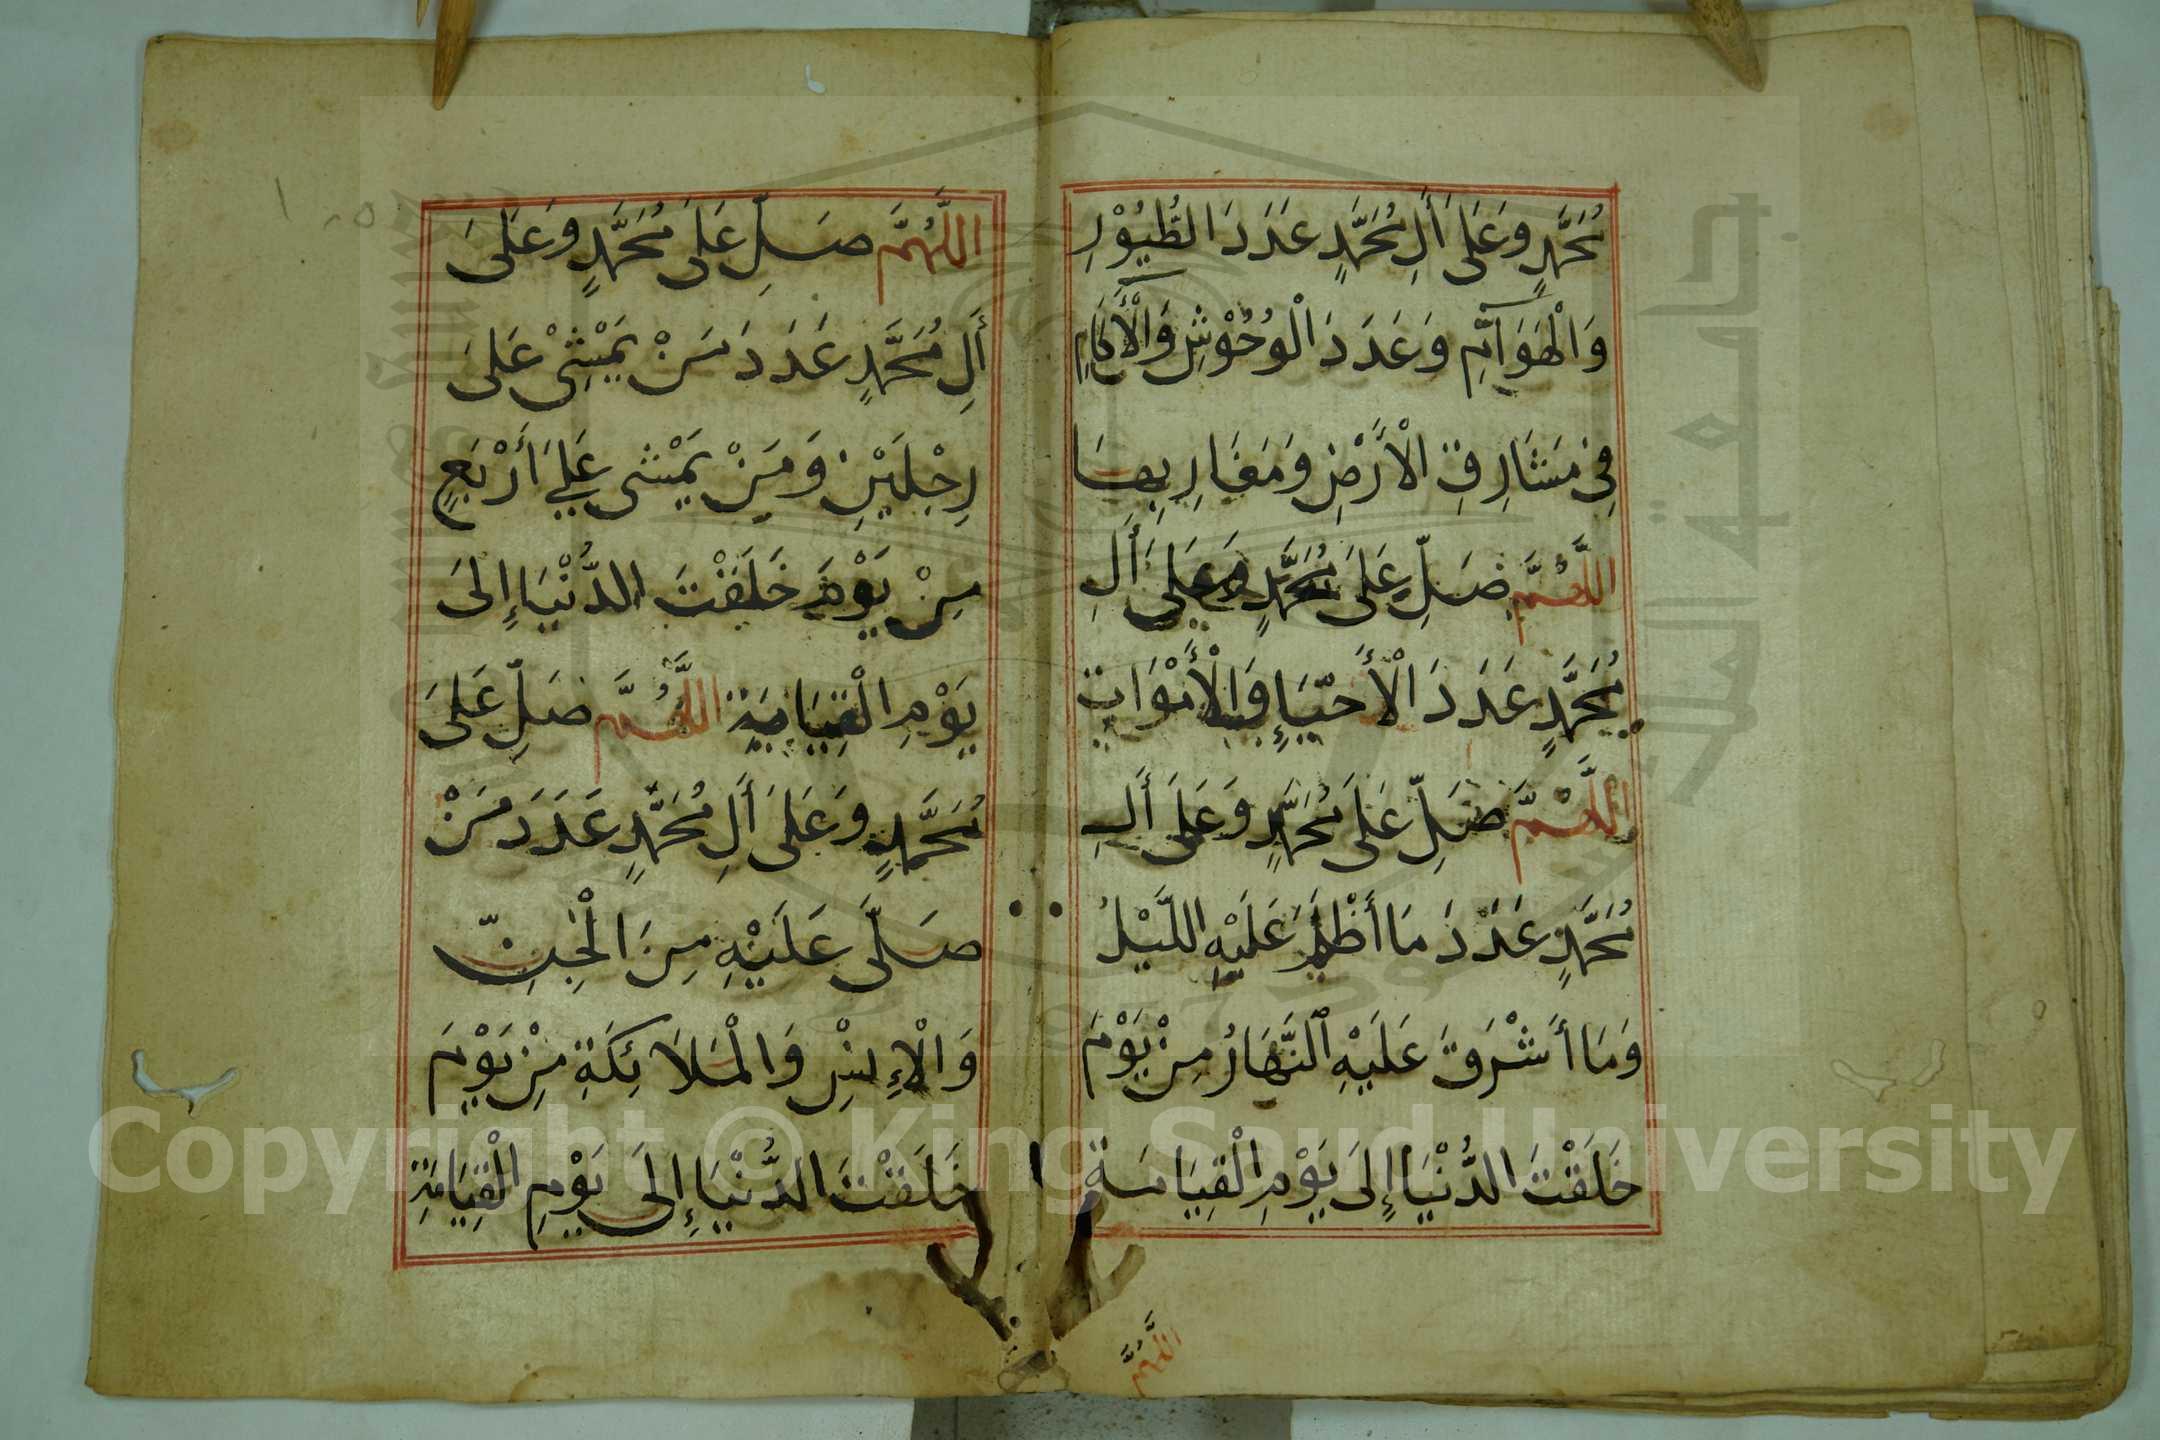 مُحَمَّدٍ وَعَلَى أَلِ مُحَمَّدٍ عَدَدَ الطُّيُوْرِ
وَالْهَوَآمِّ وَعَدَدَ الْوُحُوْشِ وَالْأٓكَامِ
فِيْ مَشَارِقِ الْأَرْضِ وَمَغَارِبِهَا
اللَّهُمَّ صَلِّ عَلَى مُحَمَّدٍ وَعَلَى أَلِ
مُحَمَّدٍ عَدَدَ الْأَحْيَاءِ وَالْأَمْوَاتِ
اللَّهُمَّ صَلِّ عَلَى مُحَمَّدٍ وَعَلَى أَلِ
مُحَمَّدٍ عَدَدَ مَا أَظْلَمَ عَلَيْهِ اللَّيْلُ
وَمَا أَشْرَقَ عَلَيْهِ النَّهَارُ مِنْ يَوْمَ
خَلَقْتَ الدُّنْيَا إِلَى يَوْمِ الْقِيَامَةِ
اللَّهُمَّ
اللَّهُمَّ صَلِّ عَلَى مُحَمَّدٍ وَعَلَى
أَلِ مُحَمَّدٍ عَدَدَ مَنْ يَمْشِيْ عَلَى
رِجْلَيْنِ وَمَنْ يَمْشِى عَلَى أَرْبَعٍ
مِنْ يَوْمَ خَلَقْتَ الدُّنْيَا إِلَى
يَوْمِ الْقِيَامَةِ اللَّهُمَّ صَلِّ عَلَى
مُحَمَّدٍ وَعَلَى أَلِ مُحَمَّدٍ عَدَدَ مَنْ
صَلَّى عَلَيْهِ مِنَ الْجِنِّ
وَالْإِنْسِ وَالْمَلَائِكَةِ مِنْ يَوْمَ
خَلَقْتَ الدُّنْيَا إِلَى يَوْمِ الْقِيَامَةِ
جامعة الملك سعود
1957
Copyright © King Saud University